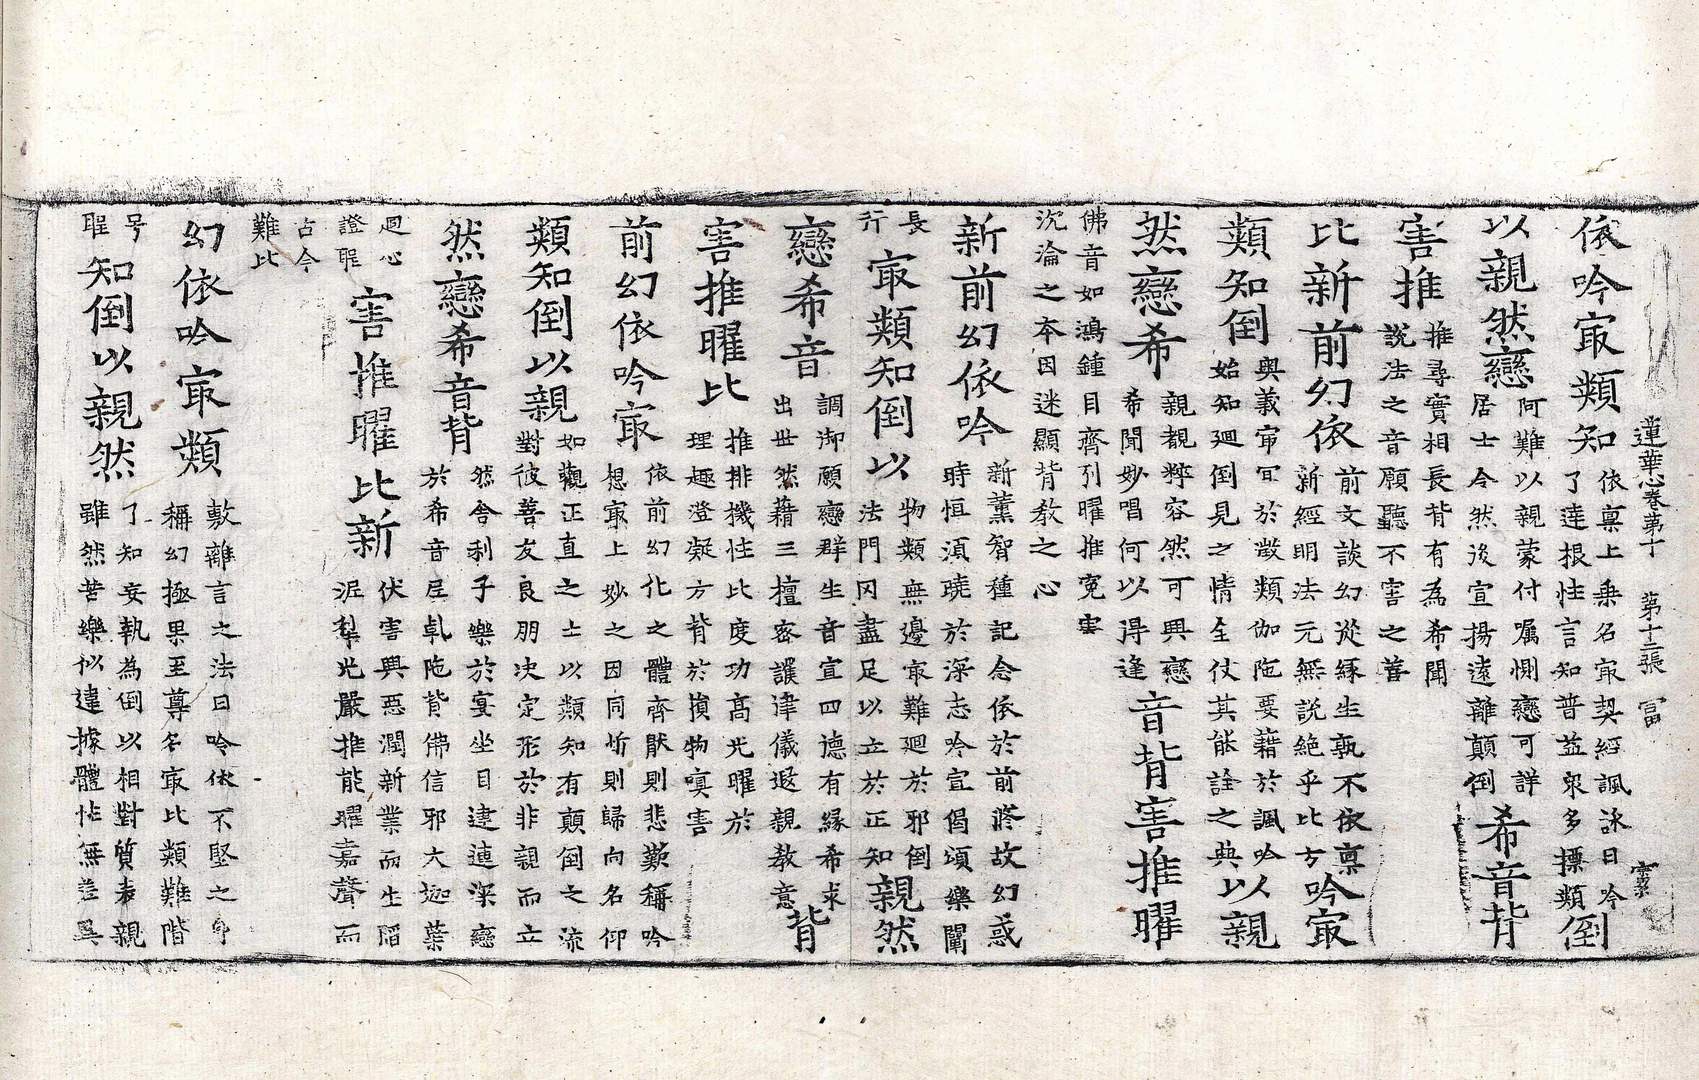 蓮華心卷第十　第十二張　冨
依吟㝡類知
依稟上乘名㝡契經諷詠曰吟
了達根性言知普益衆多摽類
倒
以親然戀
阿難以親蒙付囑惻戀可詳
居士令然後宣揚遠離顛倒
希音背
害推
推尋實相長背有為希聞
說法之音願聽不害之善
比新前幻依
前文談幻從緣生孰不依稟
新經明法元無說絶乎比方
吟㝡
類知倒
與義冝於類伽陁要藉於諷吟
始知廻倒見之情全仗其能詮之典
以親
然戀希
親覩粹容然可興戀
希聞妙唱何以得逢
音背害推曜
佛音如鴻鍾目齊引曜推寃害
沉淪之本因迷顯背教之心
新前幻依吟
新薰智種記念依於前蹤故幻惑
時恒須曉於深志吟宣偈頌樂闡
長
行
㝡類知倒以
物類無邊㝡難廻於邪倒
法門罔盡足以立於正知
親然
戀希音
調御願戀群生音宣四德有緣希求
出世然藉三檀密護律儀遐親教意
背
害推曜比
推排機性比度功高光曜於
理趣澄凝方背於損物嗔害
前幻依吟㝡
依前幻化之體齊猒則悲歎稱吟
想㝡上妙之因同忻則歸向名仰
類知倒以親
如觀正直之士以類知有顛倒之流
對彼善友良朋決定形於非親而立
然戀希音背
然舍利子樂於宴坐目連連深戀
於希音尼乹陁背佛信邪大迦葉
廻心
證聖
害推曜比新
伏害興惡潤新業而生陷
泥犁光嚴推能曜嘉聲而
古今
難比
幻依吟㝡類
敷離言之法曰吟依不堅之身
稱幻極果至尊名㝡比類難階
号
聖
知倒以親然
了知妄執為倒以相對質表親
雖然苦樂似違據體性無差異